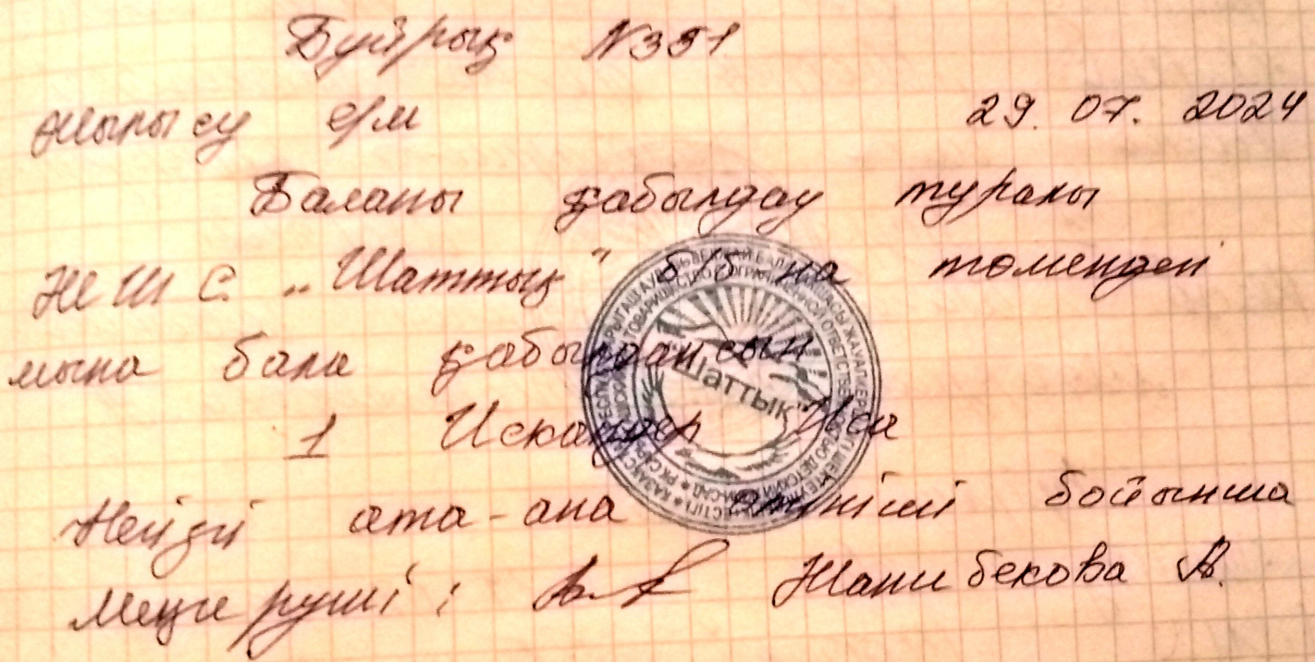 Бұйрық №351
Жылысу е/м 29. 07. 2024
Баланы қабылдау туралы
ЖШС „Шаттық" б/б на төмендегі
мына бала қабылдансын
1 Искандер Иса
Негізгі ата-ана өтініші бойынша
Меңгеруші: Жанибекова А.
"Шаттық"